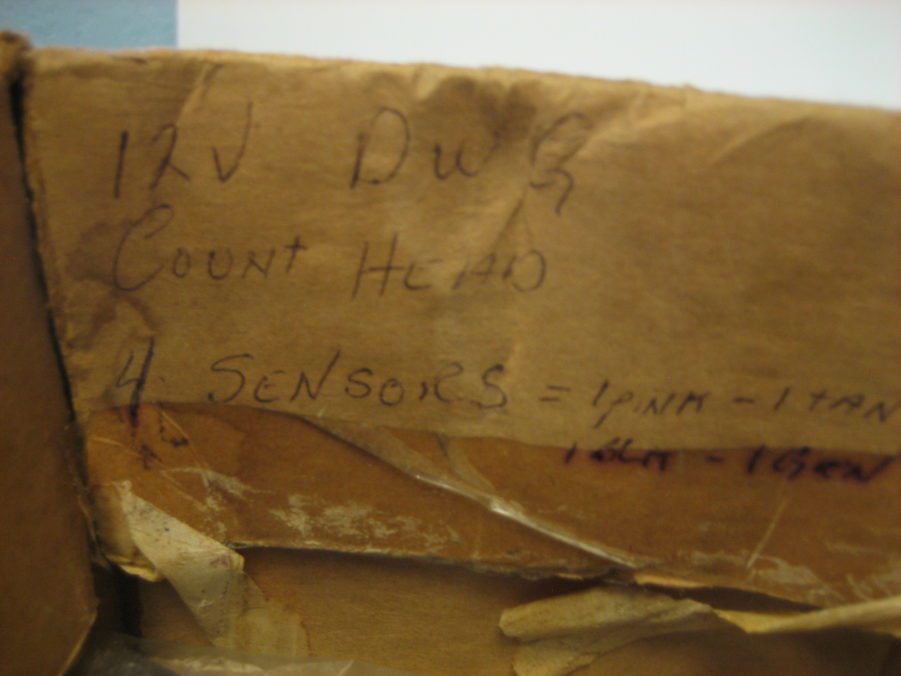 12V DWG
COUNT HEAD
4 SENSORS = 1 PINK - 1 TAN
1 BLK - 1 GRN